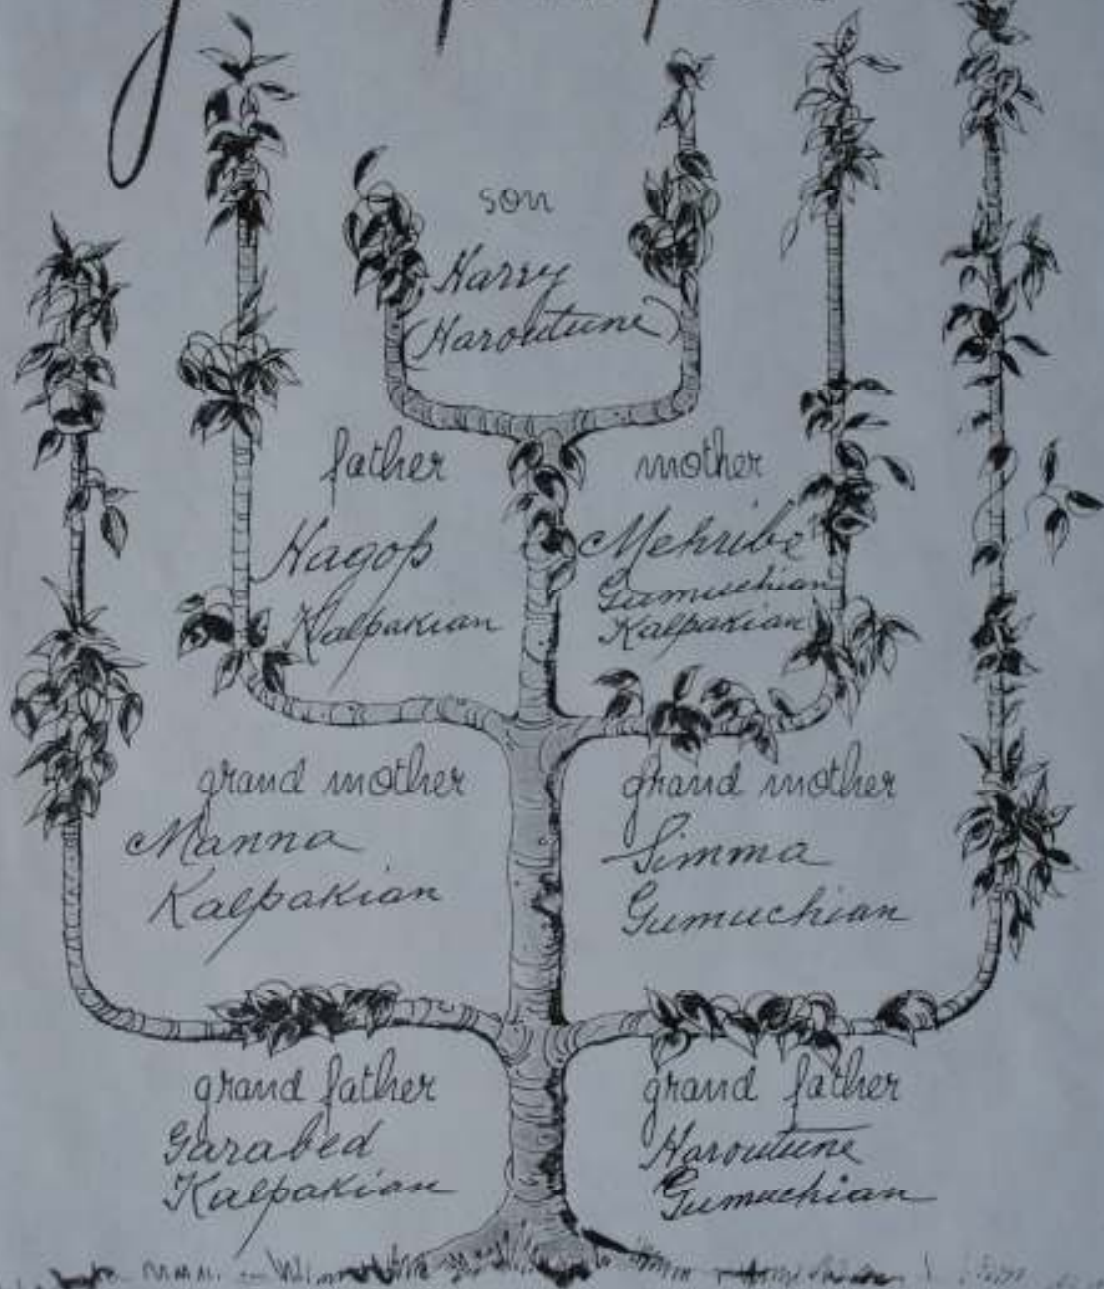 son
Harry
(Haroutune)
father
mother
Hagop
Kalpakian
Mehribe
Gumuchian
Kalpakian
grand mother
Manna
Kalpakian
grand mother
Simma
Gumuchian
grand father
Garabed
Kalpakian
grand father
Haroutune
Gumuchian